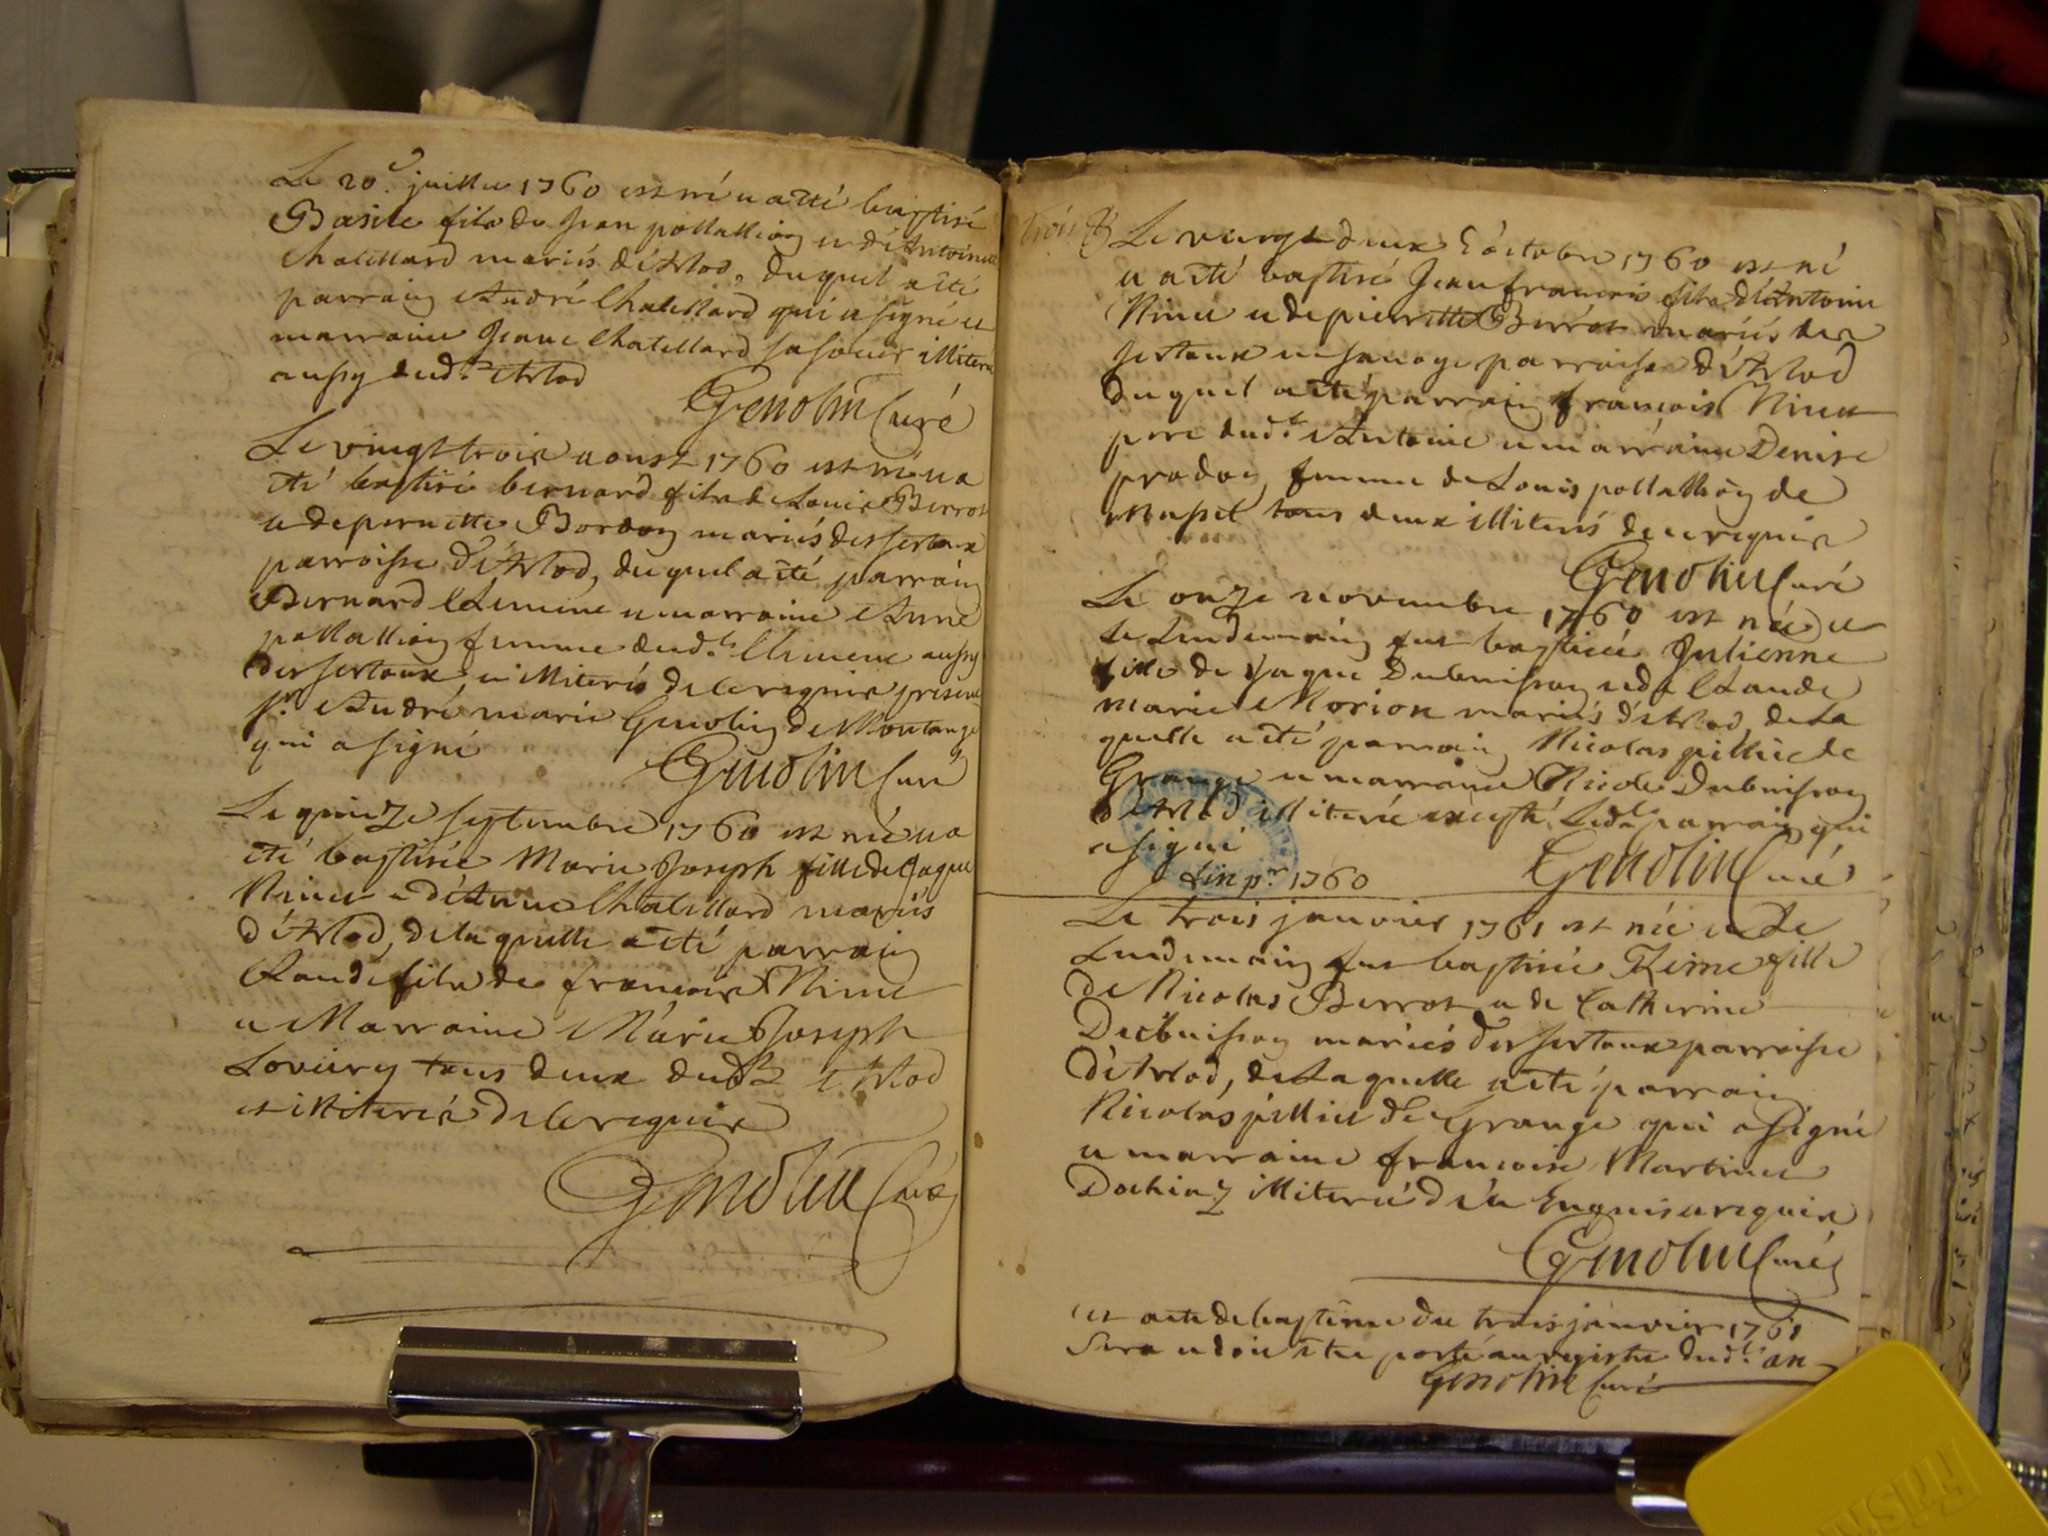 Le 20e. juillet 1760 est né et a été baptisé
Basile fils de Jean pollalliong et d'Antoinette
Chatellard mariés d'Arlod, duquel a été
parraing André Chatellard qui a signé et
marraine Jeane Chatellard sa soeur illiteré
aussy dud.t Arlod
Genolin Curé
Le vingt trois aoust 1760 est né et a
été baptisé bernard fils de Louis Berrot
et de pernette Bordong mariés des sertoux
parroisse d'Arlod, duquel a été parraing
Bernard Clemene et marraine Anne
pollalliong femme dud.t Clemene aussy
des sertoux, et illiterés de ce requis present
Sr. André marie Genoling de Montange
qui a signé
Genolin Curé
Le quinze septembre 1760 est née et a
été baptisée Marie Joseph fille de Jaque
Ninet et d'Anne Chatellard mariés
d'Arlod, de laquelle a été parraing
Claude fils de francois Ninet
et Marraine Marie Joseph
Lovéiry tous deux dud.t Arlod
et illiterés de ce requis
Genolin Curé
trois B
Le vingt deux octobre 1760 est né
et a été baptisé Jean francois fils d'Antoine
Ninet et de pierrette Berrot mariés des
sertoux en sauoge parroisse d'Arlod
duquel a été parraing francois Ninet
pere dud.t Antoine et marraine Denise
pradog femme de Louis pollalliong de
Mussel tous deux illiterés de ce requis
Genolin Curé
Le onze novembre 1760 est née et
le lendemaing fut baptisée Julienne
fille de Jaque Dubuissong et de Claude
marie Morion mariés d'Arlod, de la
quelle a été parraing Nicolas pilliet de
Grange et marraine Nicole Dubuissong
d'Arlod illiterée excepté led.t parraing qui
a signé
Genolin Curé
fin pr. 1760
Le trois janvier 1761 est née et le
lendemaing fut baptisée Reine fille
de Nicolas Berrot et de Catherine
Ducbuissong mariés des sertoux parroisse
d'Arlod, de Laquelle a été parraing
Nicolas pilliet de Grange qui a signé
et marraine francoise Martinet
Dochiaz illiterée de ce enquise et requise
Genolin Curé
cet acte de baptême du trois janvier 1761
sera et doit être porté au registre dud.t an
Genolin Curé